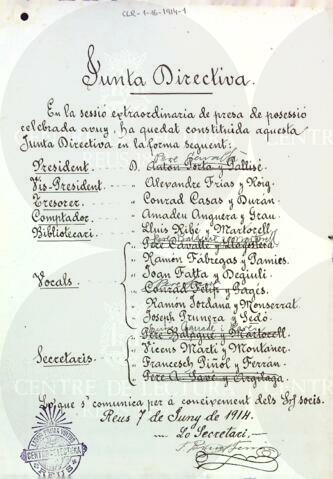 CLR-1-16-1914-1
Junta Directiva.
En la sessió extraordinaria de presa de posessió
celebrada avuy, ha quedat constituida aquesta
Junta Directiva en la forma seguent:
President. D. Anton Porta y Pallisé
Vis-President. „ Alexandre Frias y Roig.
Tresorer. „ Conrad Casas y Durán.
Comptador. „ Amadeu Anguera y Grau.
Bibliotecari. „ Lluis Ribé y Martorell
Vocals
„ Ramón Fábregas y Pamies.
„ Joan Fatta y Degiuli.
„ Conrad Felip y Pagés
„ Ramón Jordana y Monserrat.
„ Joseph Prunera y Sedó.
„ Pere Balagué y Martorell
Secretaris. „ Vicens Martí y Montaner.
„ Francesch Piñol y Ferrán
„ Pere A. Savé y Argilaga
Lo que s' comunica per á coneixement dels Srs. socis.
Reus 7 de Juny de 1914.
Lo Secretari.